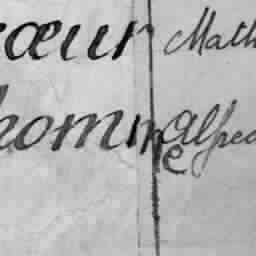 cœur Math
homme Alfred